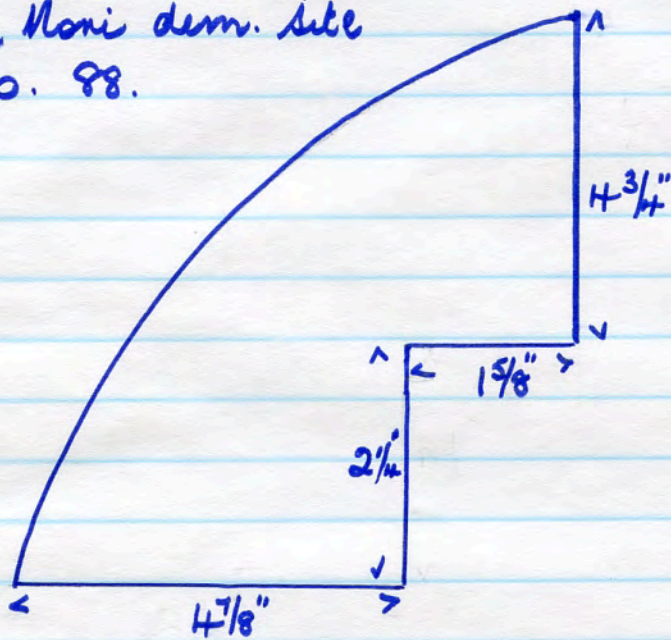 Mori dem. site
o. 88.
4 3/4"
1 5/8"
2 1/4"
4 7/8"